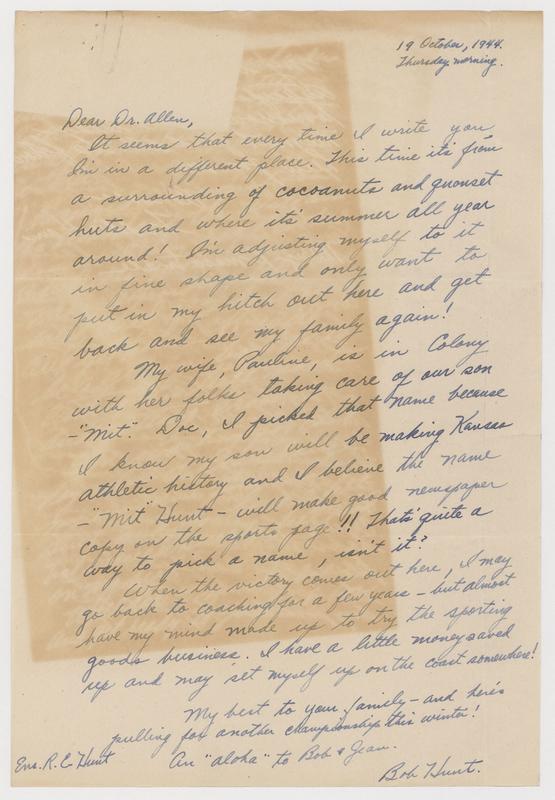 19 October, 1944.
Thursday morning.
Dear Dr. Allen,
It seems that every time I write you
I'm in a different place. This time it's from
a surrounding of cocoanuts and quonset
huts and where it's summer all year
around! I'm adjusting myself to it
in fine shape and only want to
put in my hitch out here and get
back and see my family again!
My wife, Pauline, is in Colony
with her folks taking care of our son
-"Mit". Doc, I picked that name because
I know my son will be making Kansas
athletic history and I believe the name
-"Mit Hunt - will make good newspaper
copy on the sports page!! That's quite a
way to pick a name, isn't it?
When the victory comes out here, I may
go back to coaching for a few years - but almost
have my mind made up to try the sporting
goods business. I have a little money saved
up and may set myself up on the coast somewhere!
My best to your family - and here's
pulling for another championship this winter!
An "aloha" to Bob & Jean.
Ens. R. E. Hunt
Bob Hunt.